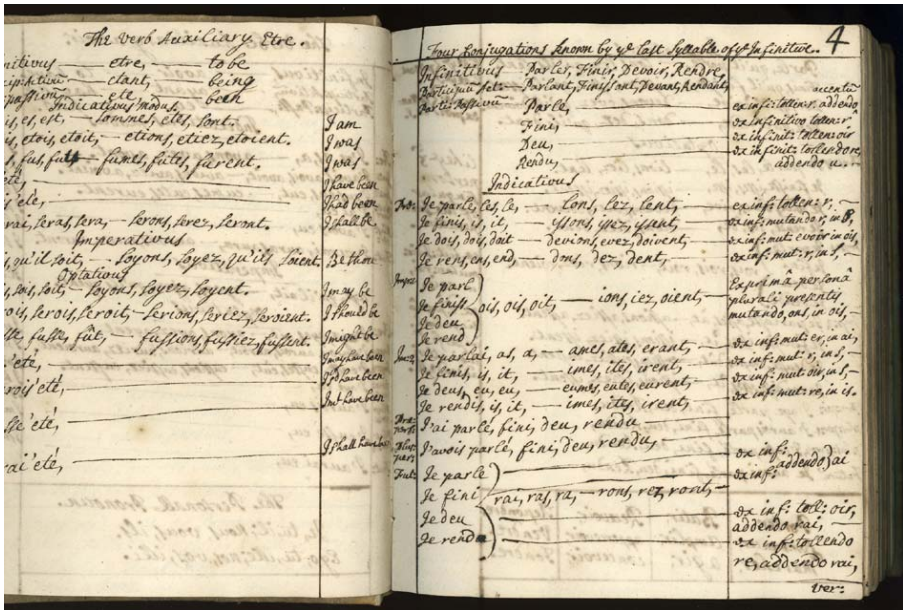 The Verb Auxiliary Etre.
nitivus — etre, — to be
— etant, being
passivum — eté, — been
Indicativus modus.
is, es, est, — sommes, etes, sont. I am
is, etois, etoit, — etions, etiez, etoient. I was
s, fus, fut — fumes, futes, furent. I was
eté, — I have been
s'eté, — I had been
rai, seras, sera, — serons, serez, seront. I shall be
Imperativus
s, qu'il soit, — soyons, soyez, qu'ils soient. Be thou
Optativus
s, sois, soit, — soyons, soyez, soyent. I may be
ois, serois, seroit, — serions, seriez, seroient. I should be
sse, fusse, fût, — fussions, fussiez, fussent. I might be
'eté, — I may have been
rois'eté, — I shd have been
sse'eté, — I mt have been
rai'eté, — I shall have be
4
Four Conjugations known by ye last Syllable of ye Infinitive.
Infinitivus Parler, Finir, Devoir, Rendre,
Participiu Act: — Parlant, Finissant, Devant, Rendant,
Parti: Passivum Parlé, — ex inf: tollen: r, addendo accentu
Fini, — ex infinitivo tollen: r
Deu, — ex infinit: tollen: oir
Rendu, — ex infinit: tollendo re, addendo u.
Indicativus
Pro: Je parle, es, e, — ons, ez, ent, — ex inf: tollen: r, —
Je finis, is, it, — issons, issez, issent — ex inf: mutando r, in s,
Je dois, dois, doit — devions, evez, doivent, — ex inf: mut: evoir in ois,
Je rens, ens, end, — dons, dez, dent, — ex inf: mut: r, in s, —
Imper: Je parl
Je finiss
Je deu
Je rend
ois, ois, oit, — ions, iez, oient, — Ex primâ personâ
plurali presentis
mutando, ons, in ois, —
Je parlai, as, a, — ames, ates, erant, — ex inf: mut: er, in ai,
Je finis, is, it, — imes, ites, irent, — ex inf: mut: r, in s, —
Je deus, eu, eu, — eumes, eutes, eurent, — ex inf: mut: oir, in s, —
Je rendis, is, it, — imes, ites, irent, — ex inf: mut: re, in is.
J'ai parlé, fini, deu, rendu
Plus: per: J'avois parlé, fini, deu, rendu, —
Fut: Je parle — ex inf: addendo ai
Je fini — ex inf:
rai, ras, ra, — rons, rez, ront, —
Je deu — ex inf: toll: oir,
addendo rai, —
Je rendu — ex inf: tollendo
re, addendo rai,
ver: